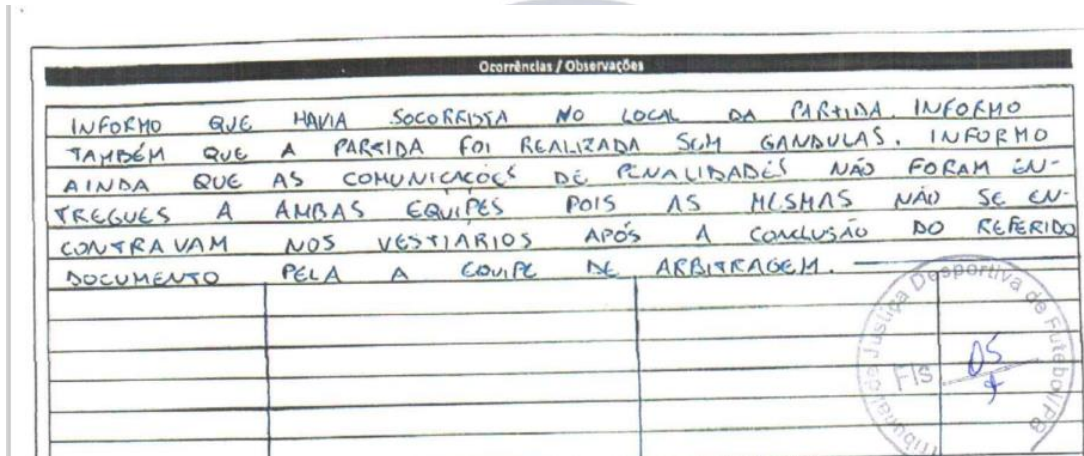 Ocorrências / Observações
INFORMO QUE HAVIA SOCORRISTA NO LOCAL DA PARTIDA. INFORMO
TAMBÉM QUE A PARTIDA FOI REALIZADA SEM GANDULAS. INFORMO
AINDA QUE AS COMUNICAÇÕES DE PENALIDADES NÃO FORAM EN-
TREGUES A AMBAS EQUIPES POIS AS MESMAS NÃO SE EN-
CONTRAVAM NOS VESTIARIOS APÓS A CONCLUSÃO DO REFERIDO
DOCUMENTO PELA A EQUIPE DE ARBITRAGEM.
Tribunal de Justiça Desportiva de Futebol/PB
Fls 05